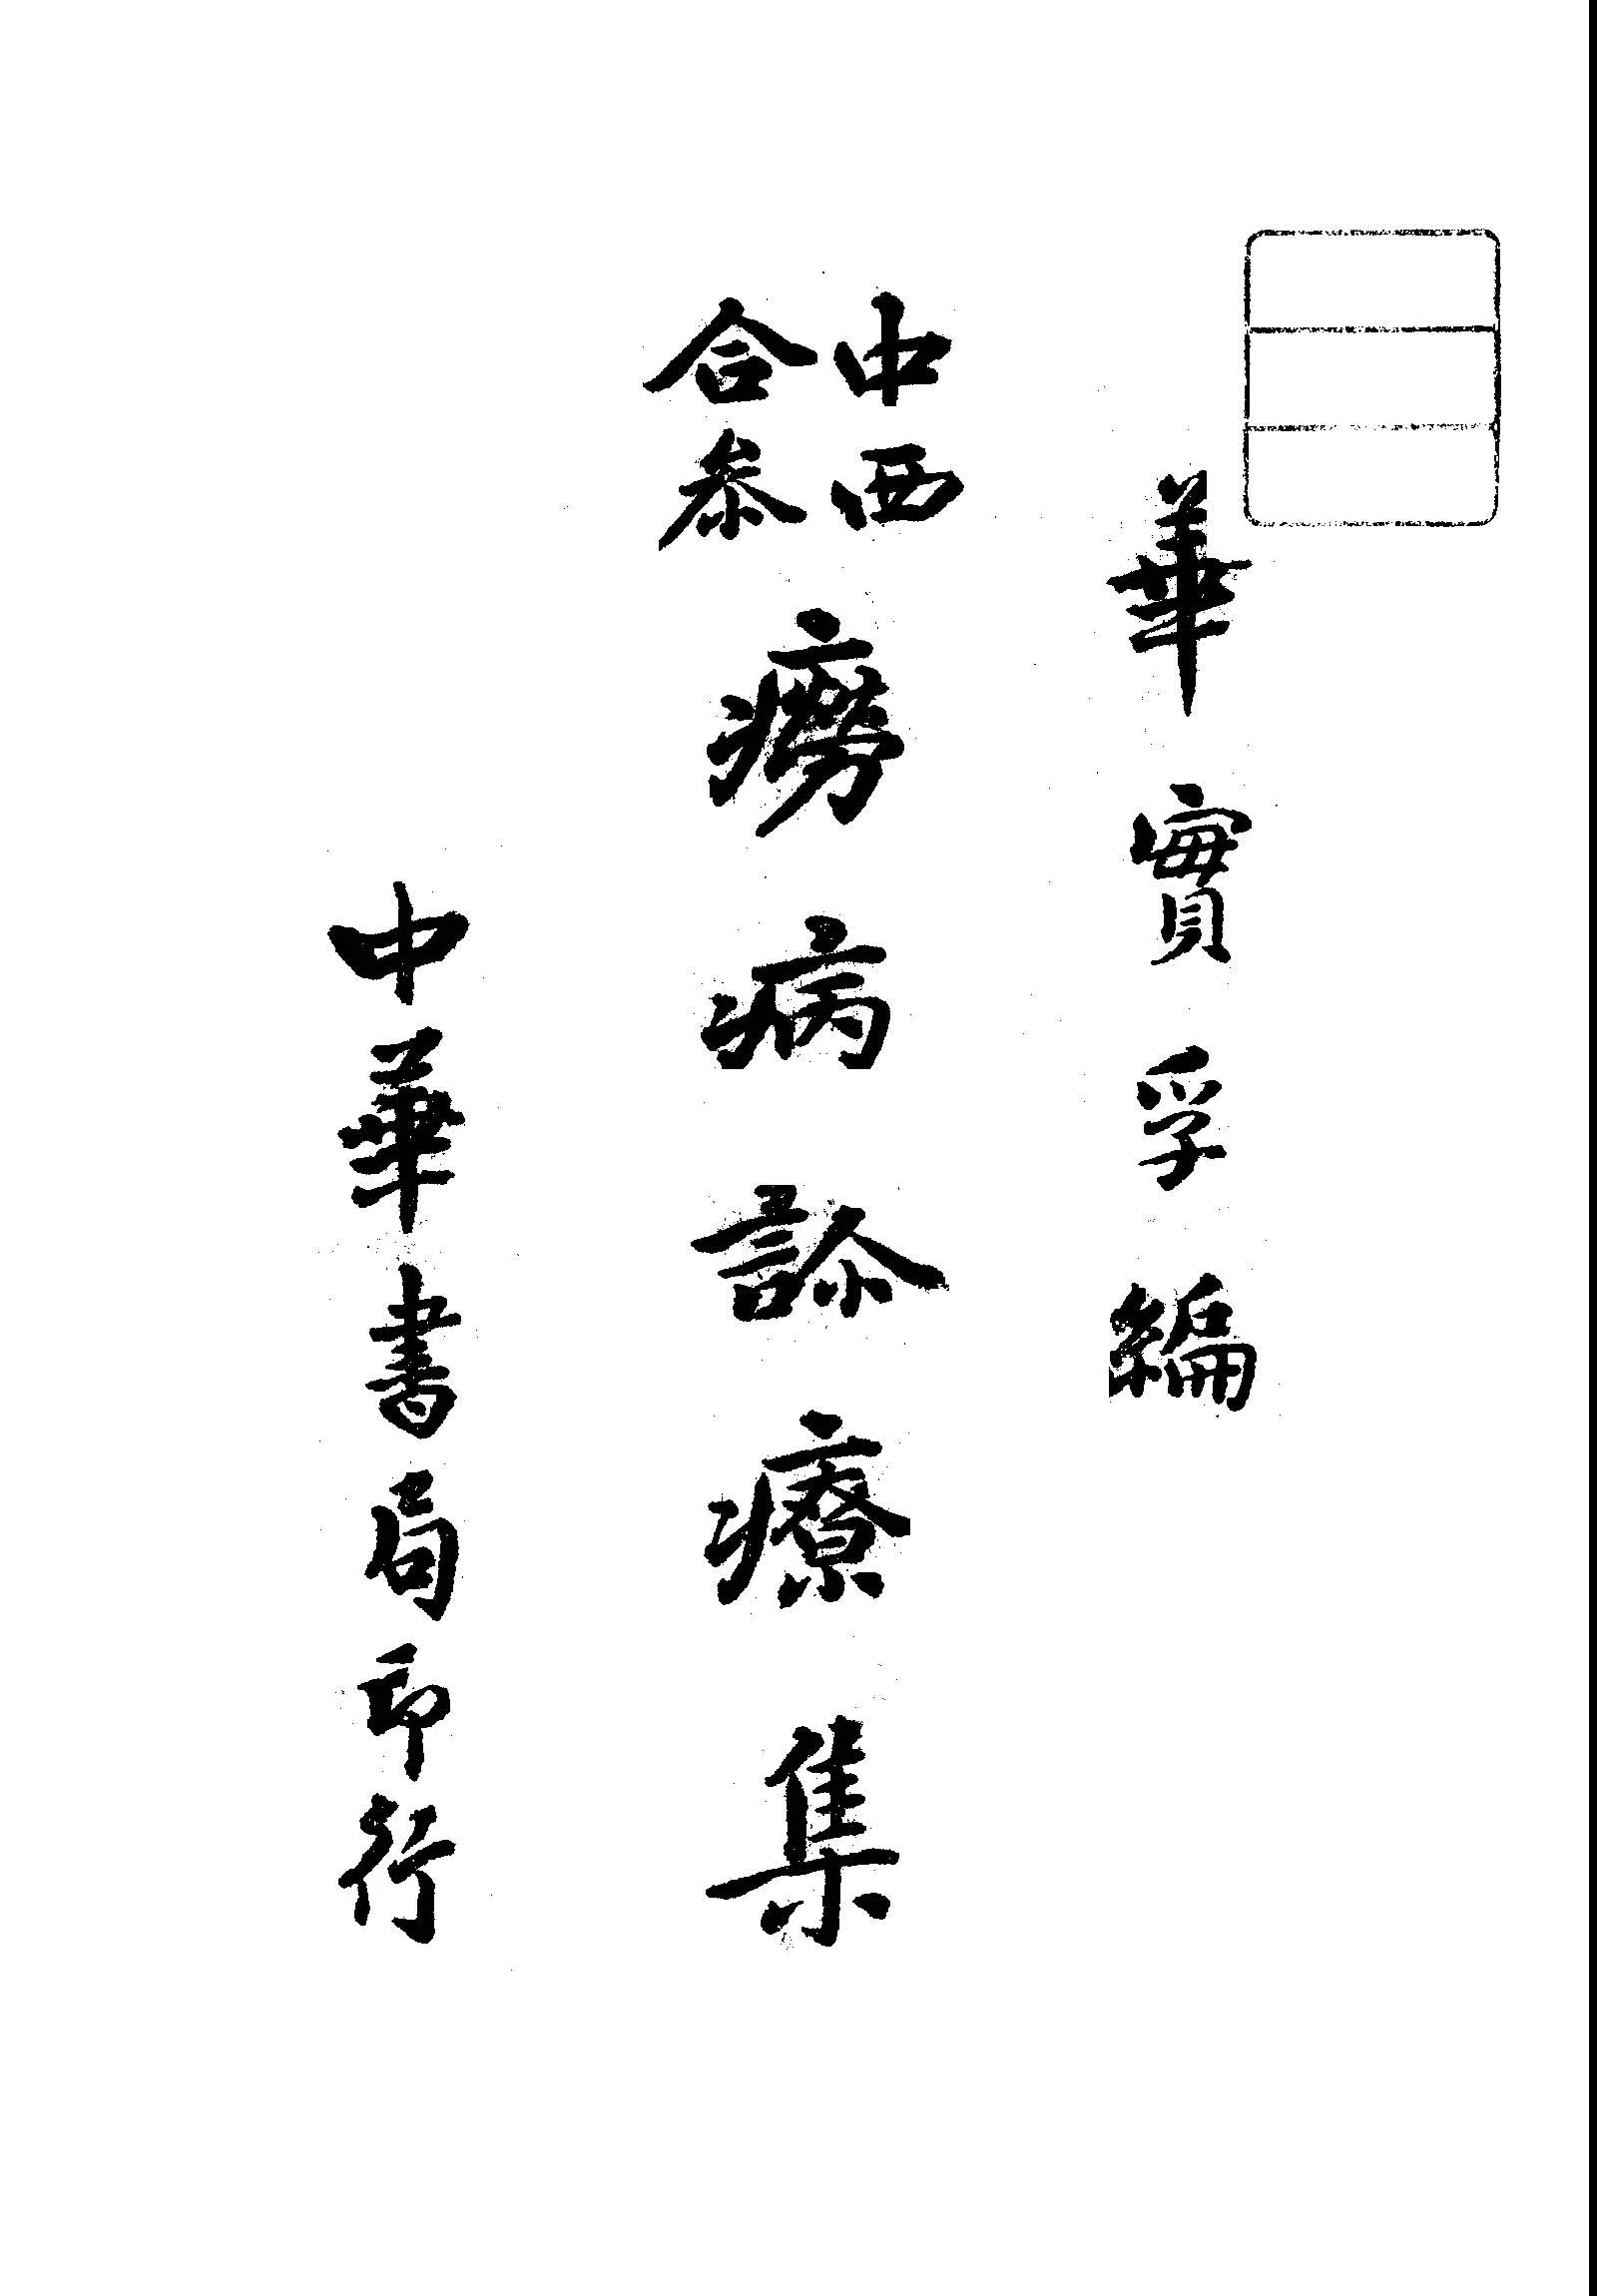 華實孚編
中西
合參
癆病診療集
中華書局印行